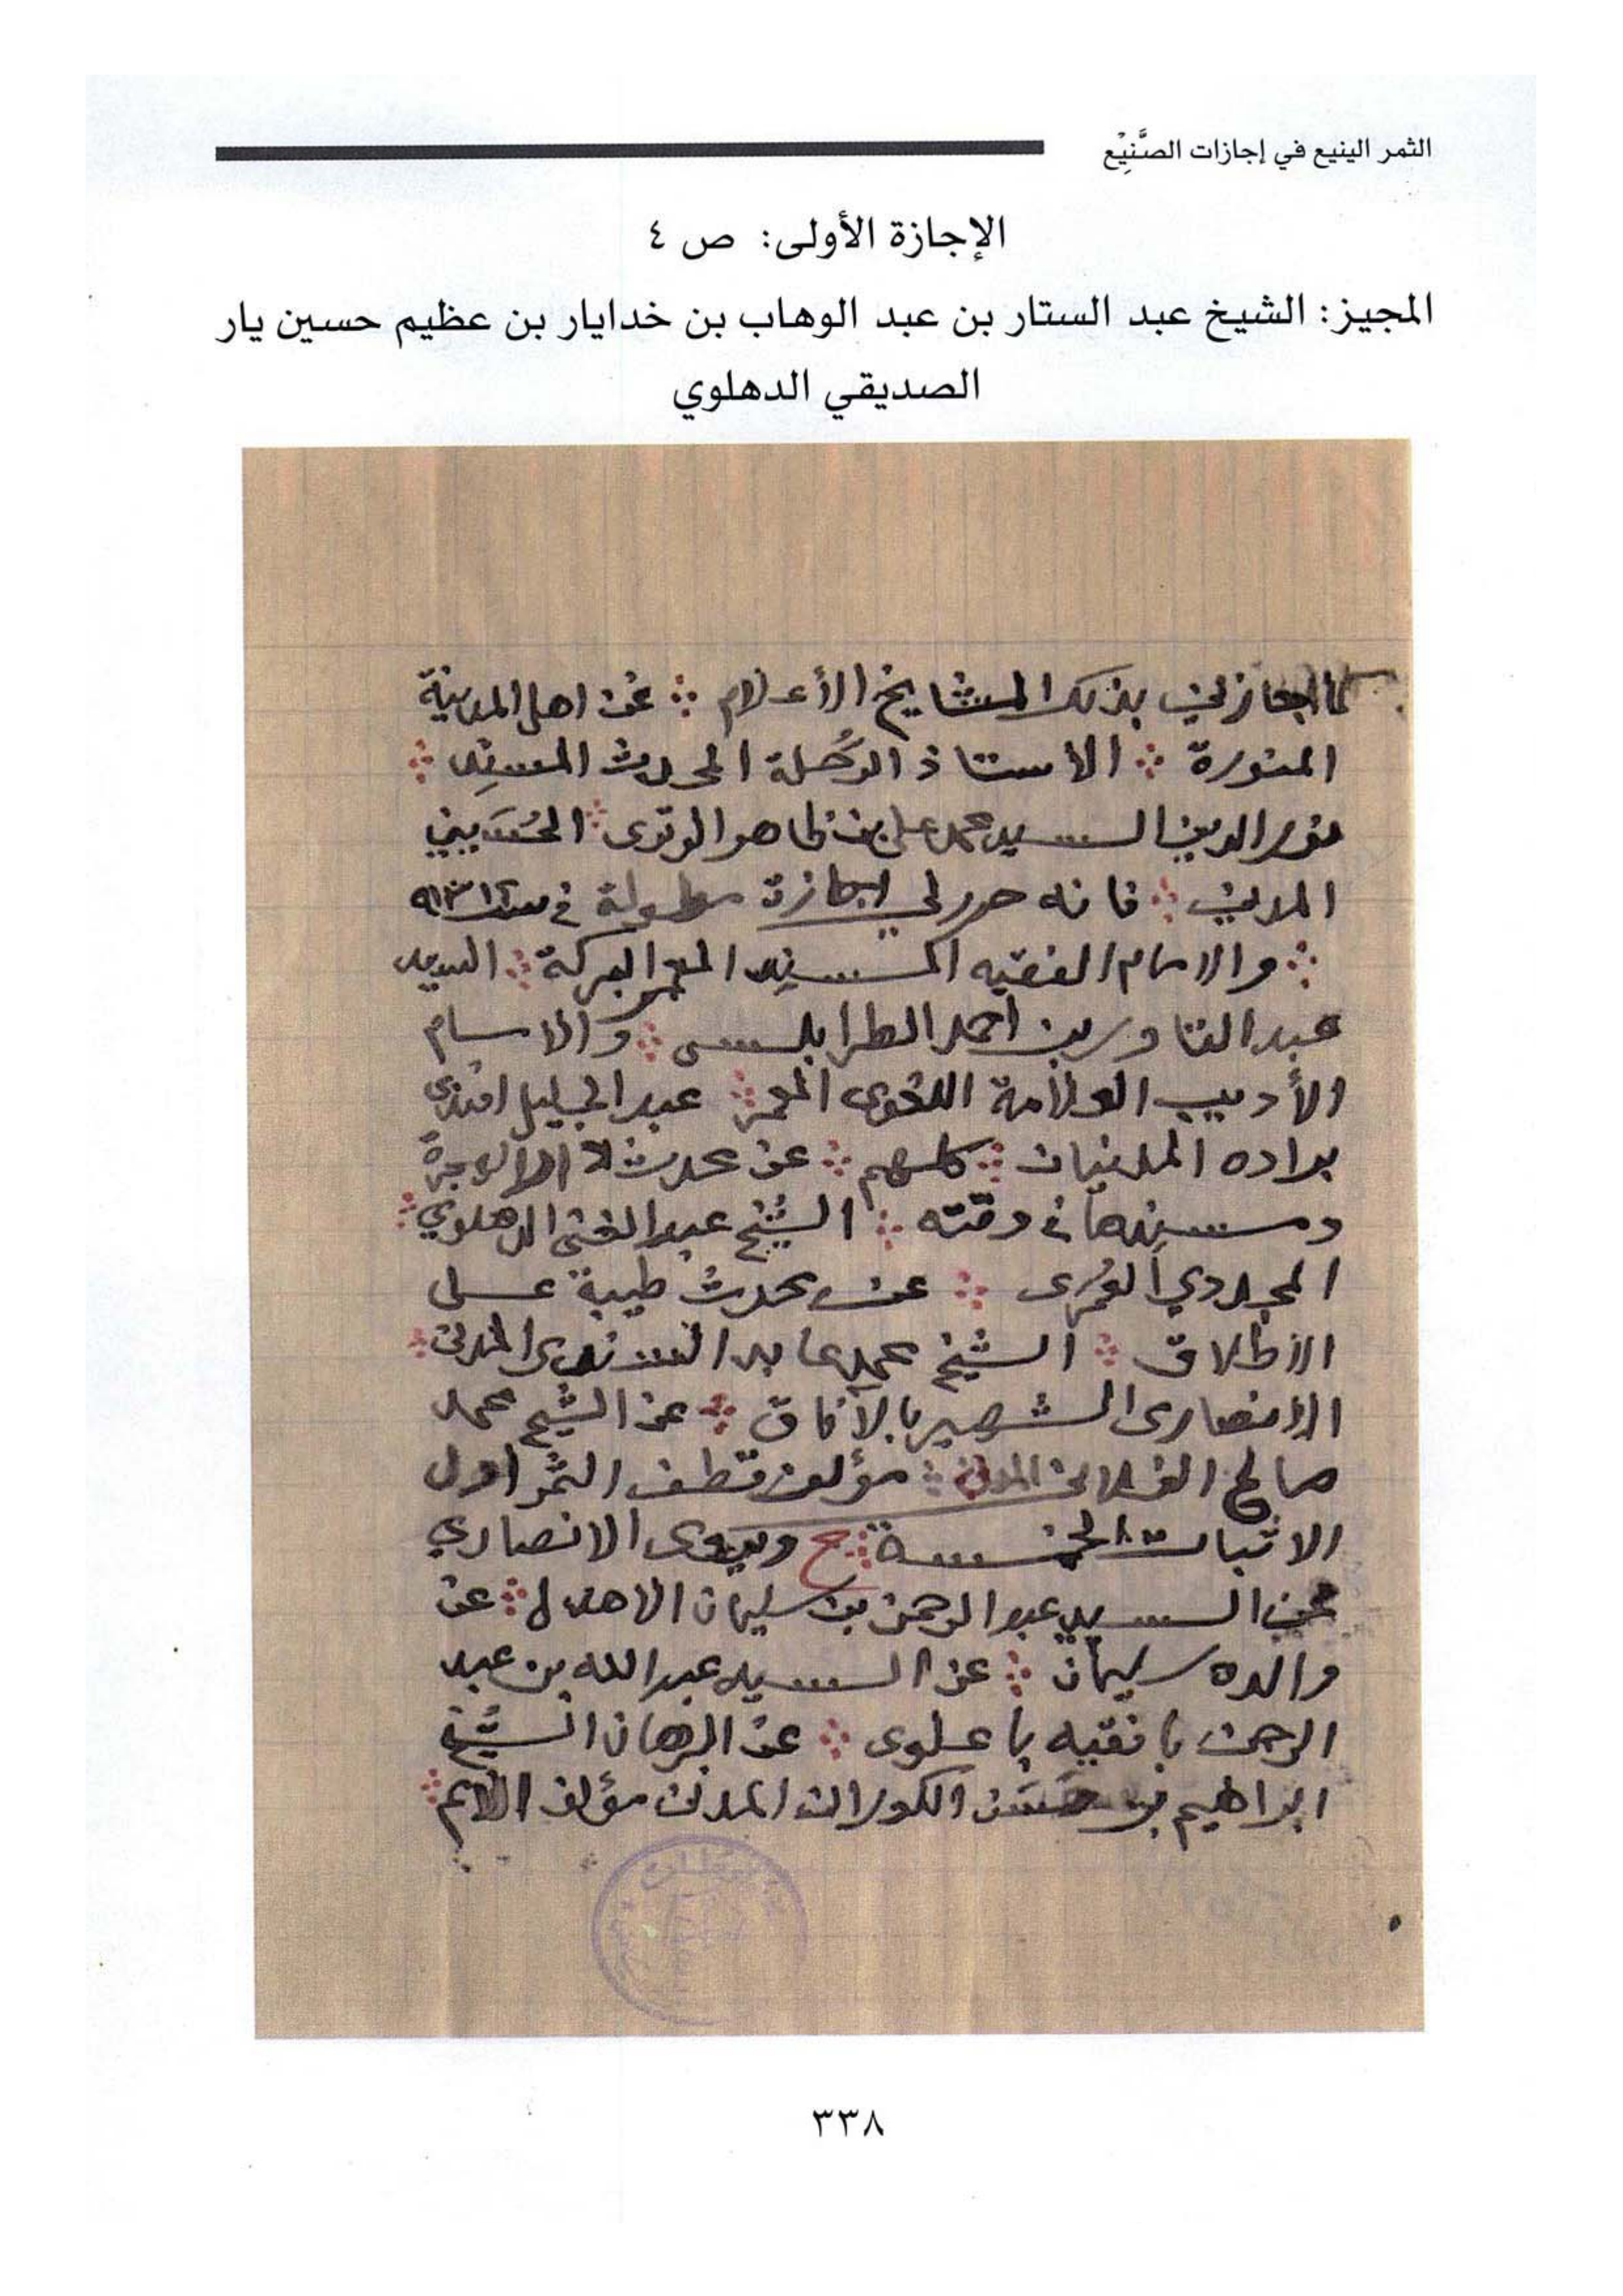 الثمر الينيع في إجازات الصَّنِيْع
الإجازة الأولى: ص ٤
المجيز: الشيخ عبد الستار بن عبد الوهاب بن خدايار بن عظيم حسين يار
الصديقي الدهلوي
كما اجازني بذلك المشايخ الأعلام ؞ فمن اهل المدينة
المنورة ؞ الاستاذ الرُحلة المحدث المسنِد ؞
نور الدين السيد محمد علي بن ظاهر الوتري ؞ الحُسَيني
المدني ؞ فانه حرر لي اجازة مطولة في سنة
؞ والامام الفقيه المسنِد المعمر البركة ؞ السيد
عبد القادر بن احمد الطرابلسي ؞ والامام
الأديب العلامة اللغوي المعمر ؞ عبد الجليل افندي
براده المدنيان ؞ كلهم ؞ عن محدث دار الهجرة
ومسندها في وقته ؞ الشيخ عبد الغني الدهلوي ؞
المجددي العُمَري ؞ عن محدث طيبة على
الاطلاق ؞ الشيخ محمد عابد السندي المدني ؞
الانصاري الشهير بالآفاق ؞ عن الشيخ محمد
صالح الفلاني المدني ؞ مؤلف قطف الثمر اول
الاثبات الخمسة ؞ ح ويروي الانصاري
عن السيد عبد الرحمن بن سليمان الاهدل ؞ عن
والده سليمان ؞ عن السيد عبد الله بن عبد
الرحمن با فقيه با علوي ؞ عن البرهان الشيخ
ابراهيم بن حَسَن الكوراني المدني مؤلف الامم ؞
٣٣٨